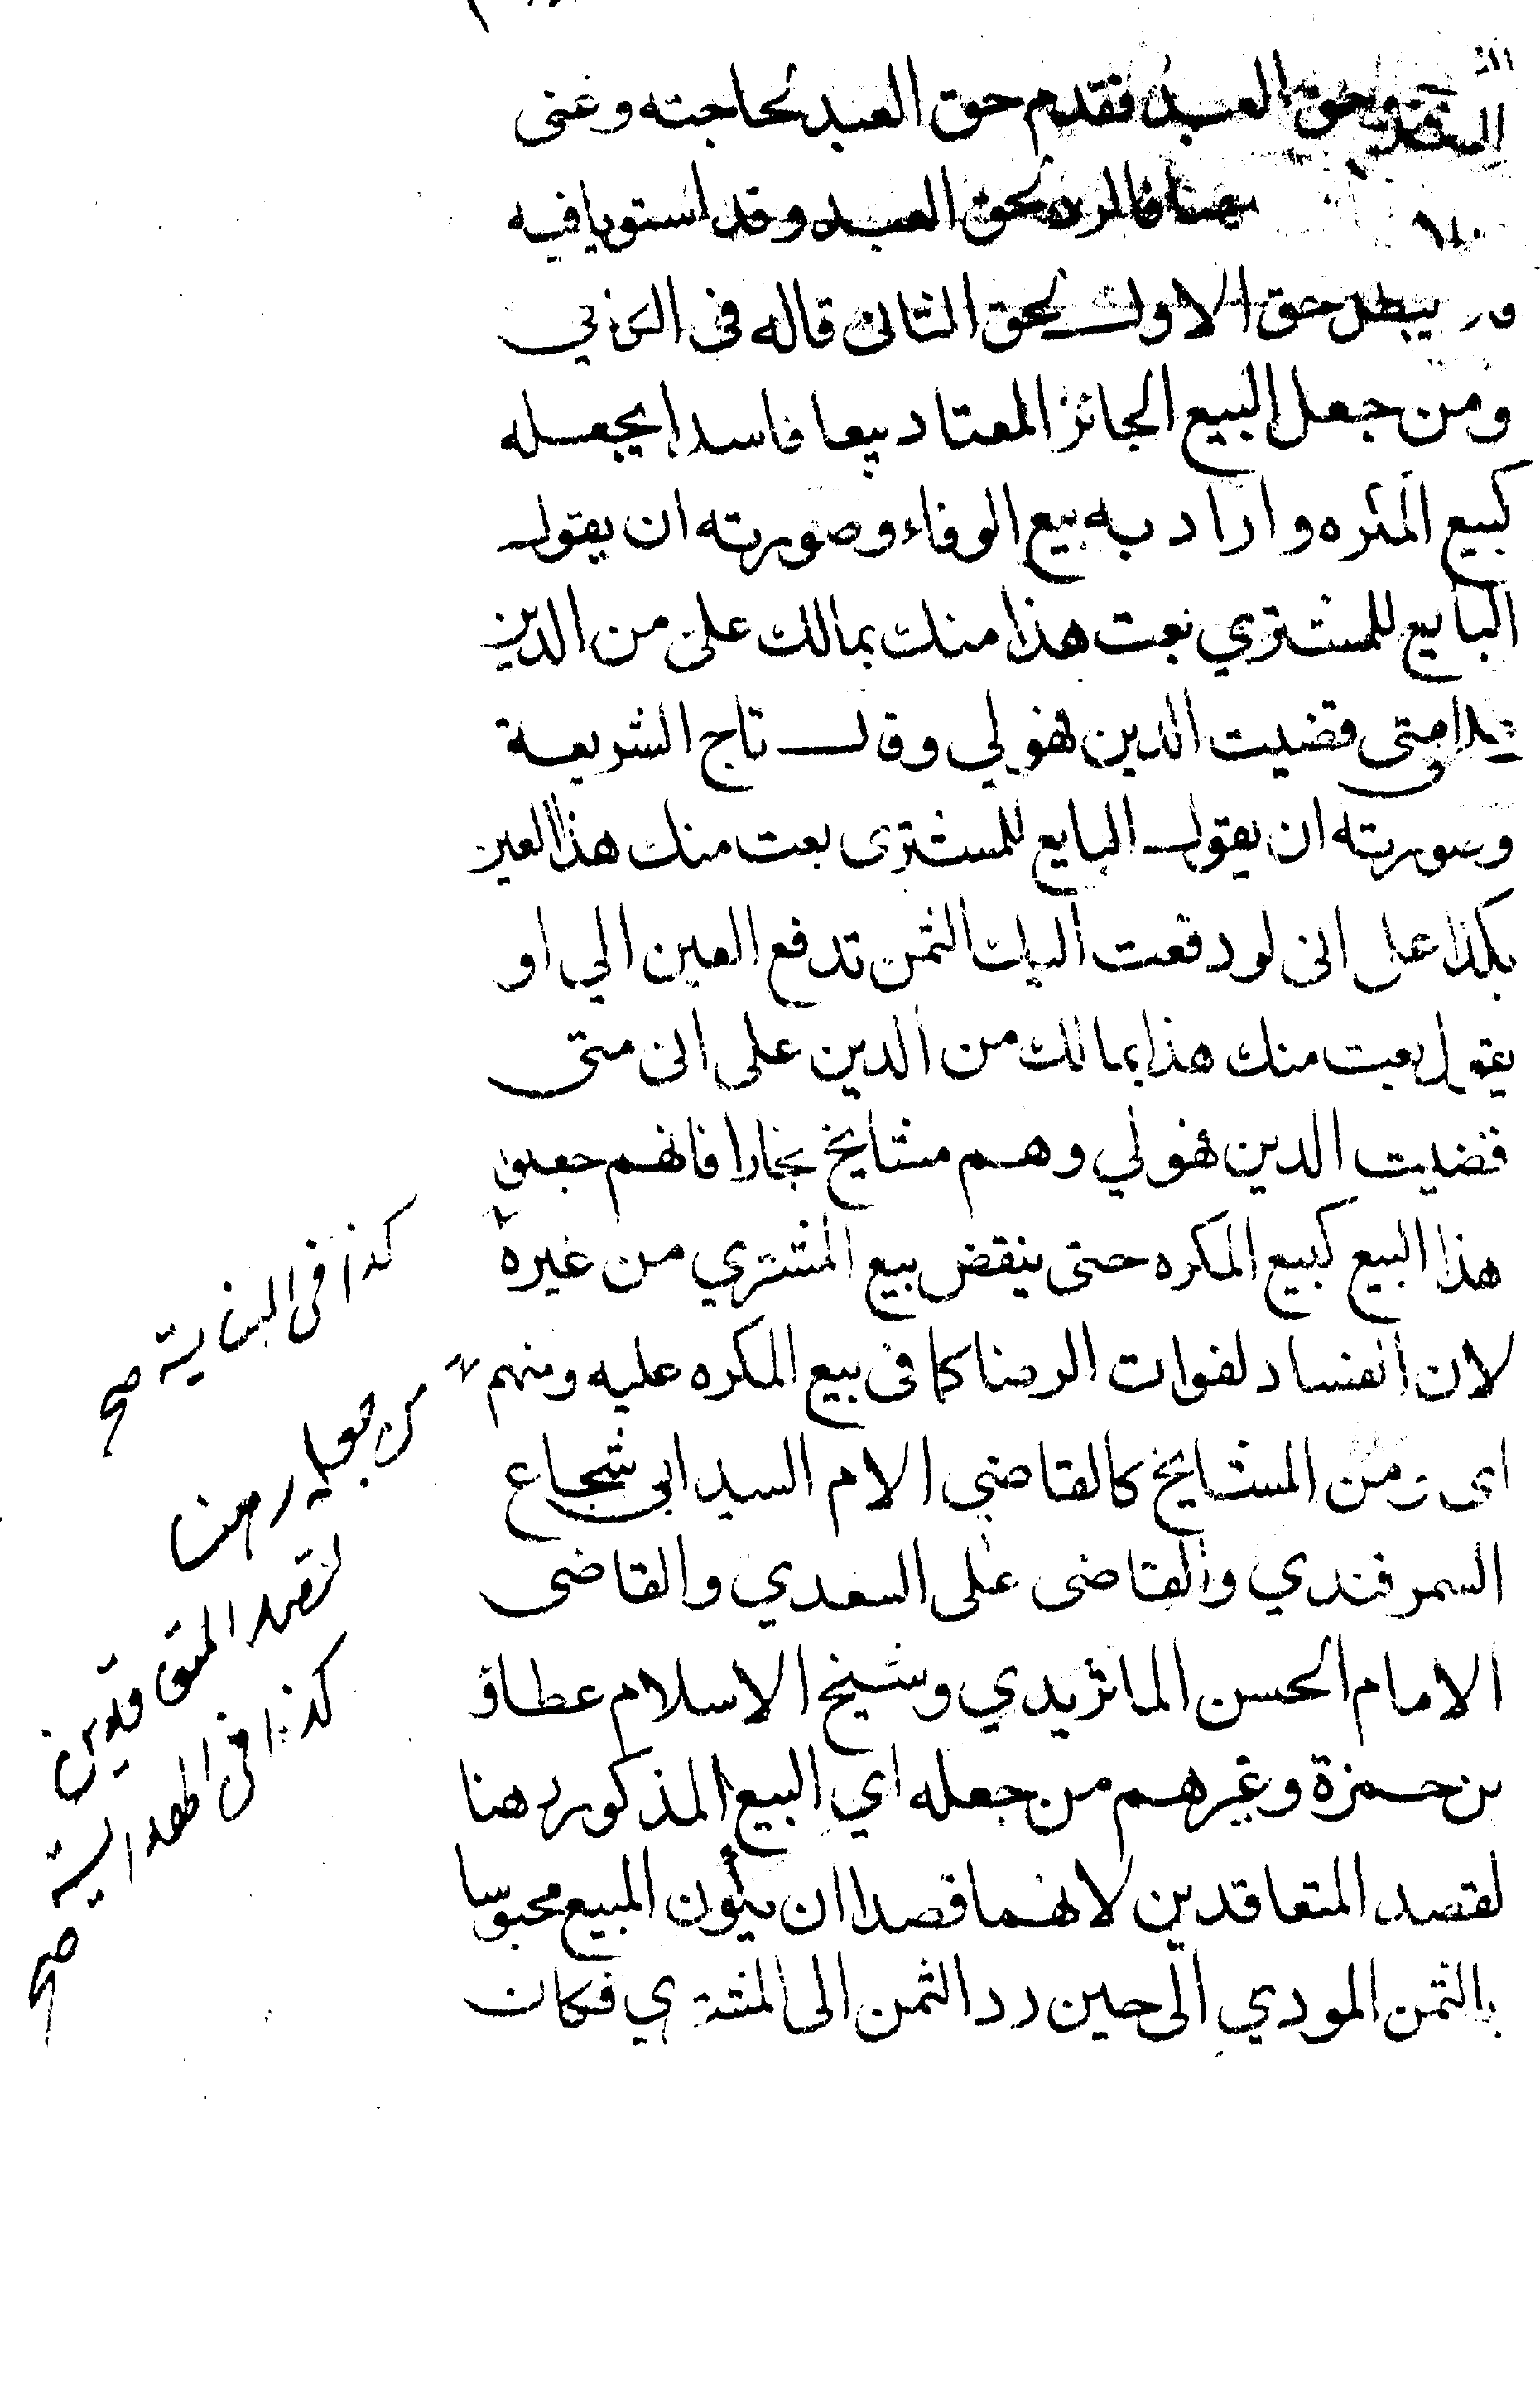 وحق العبد فقدم حق العبد لحاجته وغنى
هنا فالرد لحق العبد وقد استويا فيه
يبطل حق الاول لحق الثانى قاله فى الكافي
ومن جعل البيع الجائز المعتاد بيعا فاسدا يجعله
كبيع المكره واراد به بيع الوفاء وصورته ان يقول
البايع للمشتري بعت هذا منك بمالك على من الدين
متى قضيت الدين فهو لي وقال تاج الشريعة
وصورته ان يقول البايع للمشترى بعت منك هذا العين
بكذا على انى لو دفعت اليك الثمن تدفع العين الي او
يقول بعت منك هذا بمالك من الدين على انى متى
قضيت الدين فهو لي وهم مشايخ بخارا فانهم جعلوا
هذا البيع كبيع المكره حتى ينقض بيع المشتري من غيره
لان الفساد لفوات الرضا كما فى بيع المكره عليه ومنهم
اى ومن المشايخ كالقاضي الامام السيد ابى شجاع
السمرقندي والقاضى على السعدي والقاضى
الامام الحسن الماتريدي وشيخ الاسلام عطاؤ
بن حمزة وغيرهم من جعله اي البيع المذكور رهنا
لقصد المتعاقدين لانهما قصدا ان يكون المبيع محبوسا
بالثمن المودي الى حين رد الثمن الى المشتري فكان
كذا فى البناية صح
من جعله رهنا
لقصد المتعاقدين
كذا فى الهداية
صح